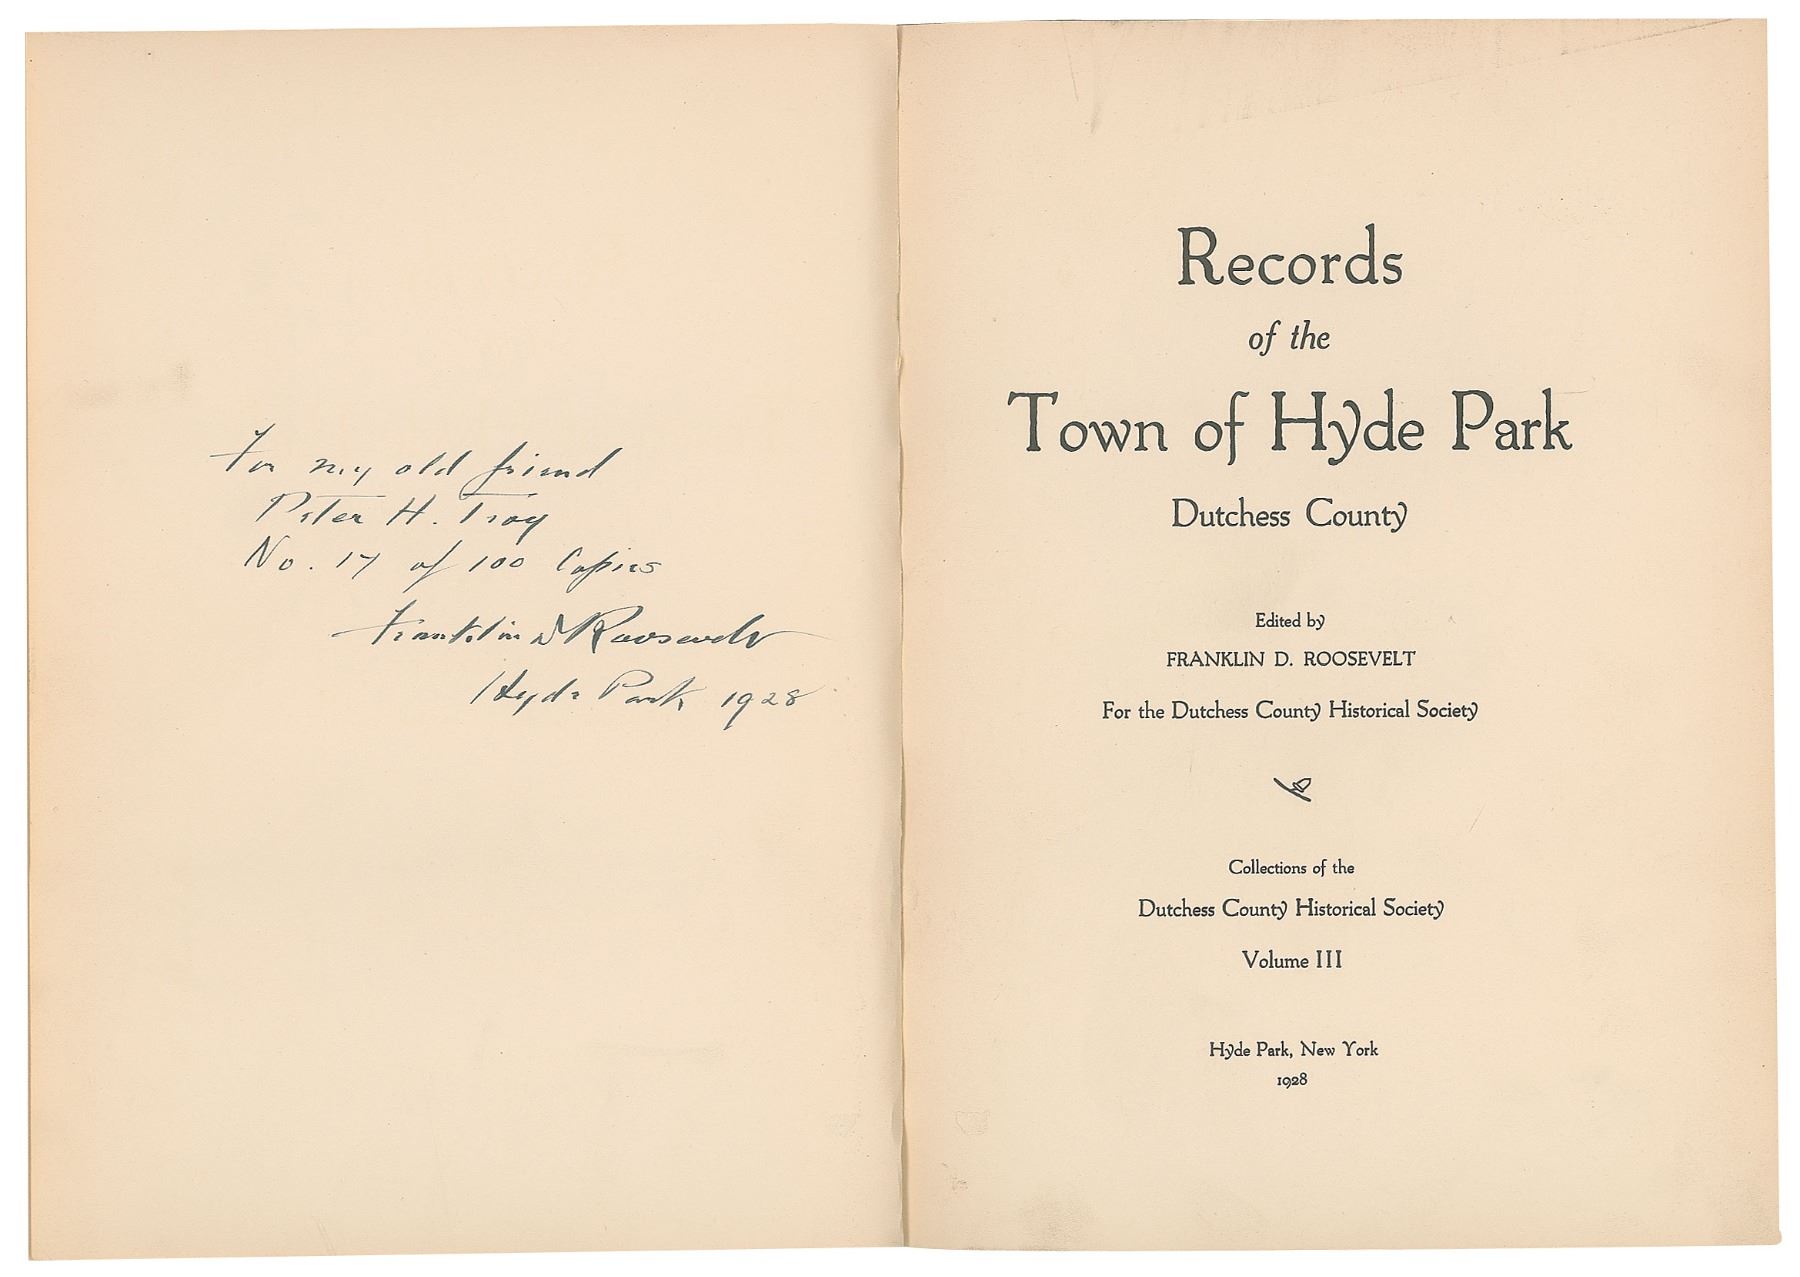 For my old friend
Peter H. Troy
No. 17 of 100 Copies
Franklin D Roosevelt
Hyde Park 1928
Records
of the
Town of Hyde Park
Dutchess County
Edited by
FRANKLIN D. ROOSEVELT
For the Dutchess County Historical Society
Collections of the
Dutchess County Historical Society
Volume III
Hyde Park, New York
1928